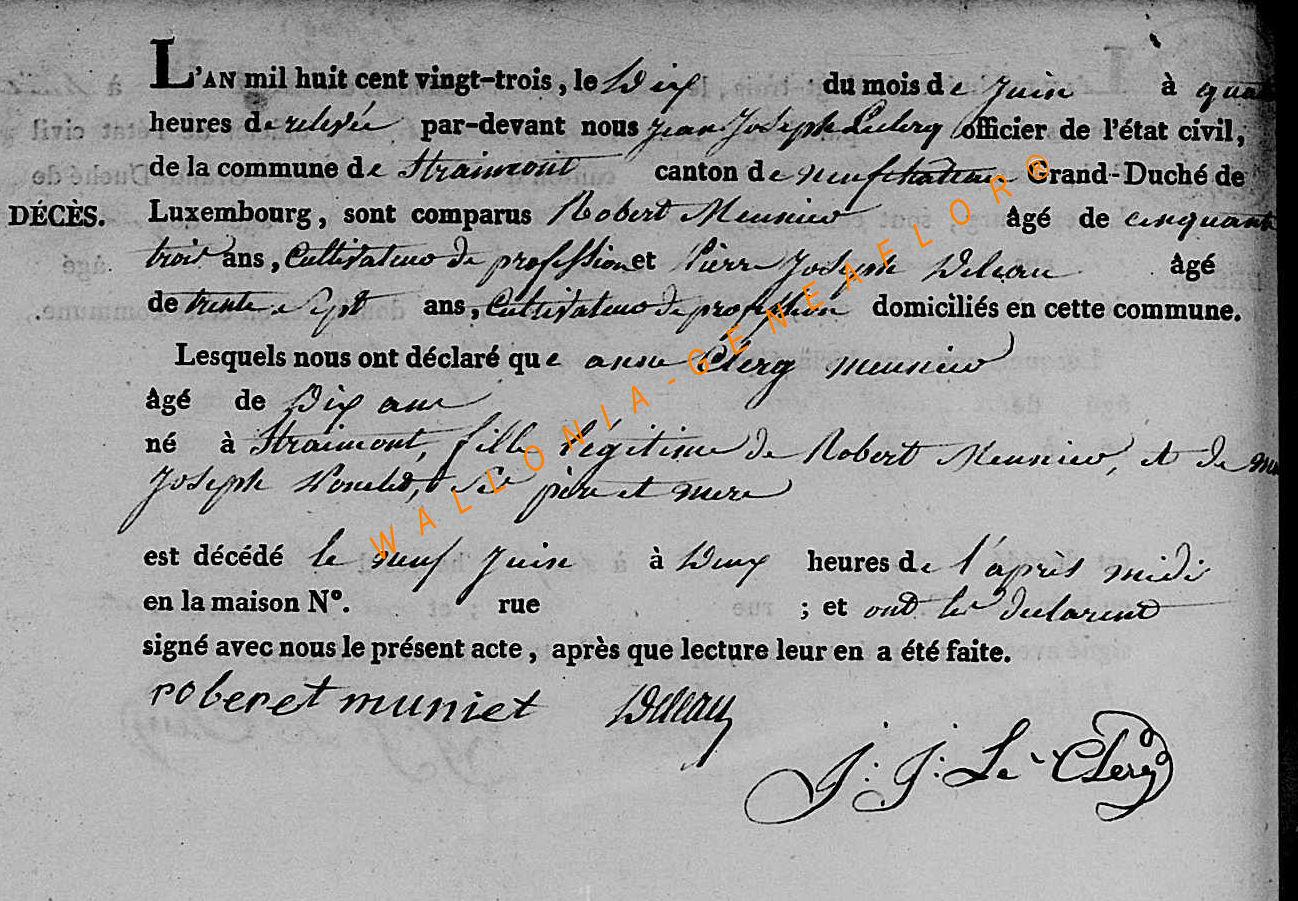 L'AN mil huit cent vingt-trois, le Dix du mois de Juin à
heures de relevée par-devant nous Jean Joseph Leclerq officier de l'état civil,
de la commune de Straimont canton de neufchateau Grand-Duché de
DÉCÈS. Luxembourg, sont comparus Robert Meunier âgé de
trois ans, Cultivateur de profession et Pierre Joseph Deleau âgé
de trente Sept ans, Cultivateur de profession domiciliés en cette commune.
Lesquels nous ont déclaré que anne Clerq meunier
âgé de Dix ans
né à Straimont, fille légitime de Robert Meunier, et de
Joseph père et mere
est décédé le neuf Juin à Deux heures de l'après midi
en la maison N°. rue ; et ont les declarent
signé avec nous le présent acte, après que lecture leur en a été faite.
roberet muniet Deleau
J: J: Le Clerq
WALLONIA-GENEAFLOR®